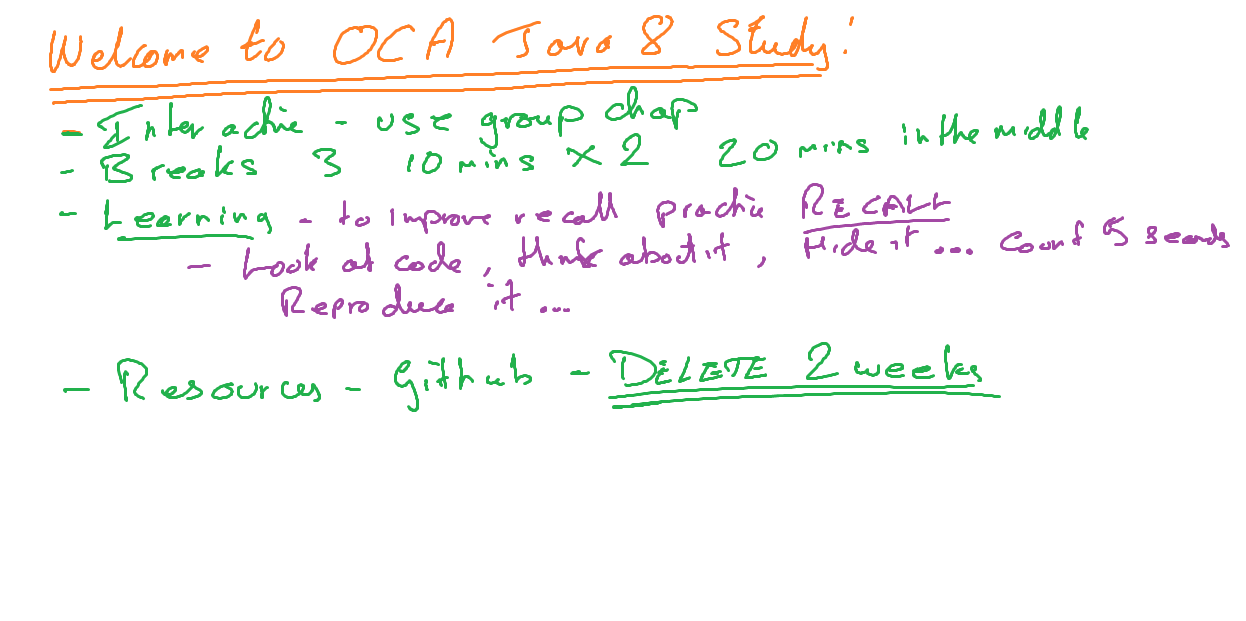 Welcome to OCA Java 8 Study!
- Interactive - use group chap
- Breaks 3 10 mins x 2 20 mins in the middle
- Learning - to improve recall practice RECALL
- Look at code, think about it, Hide it ... Count 5 seconds
Reproduce it ...
- Resources - Github - DELETE 2 weeks